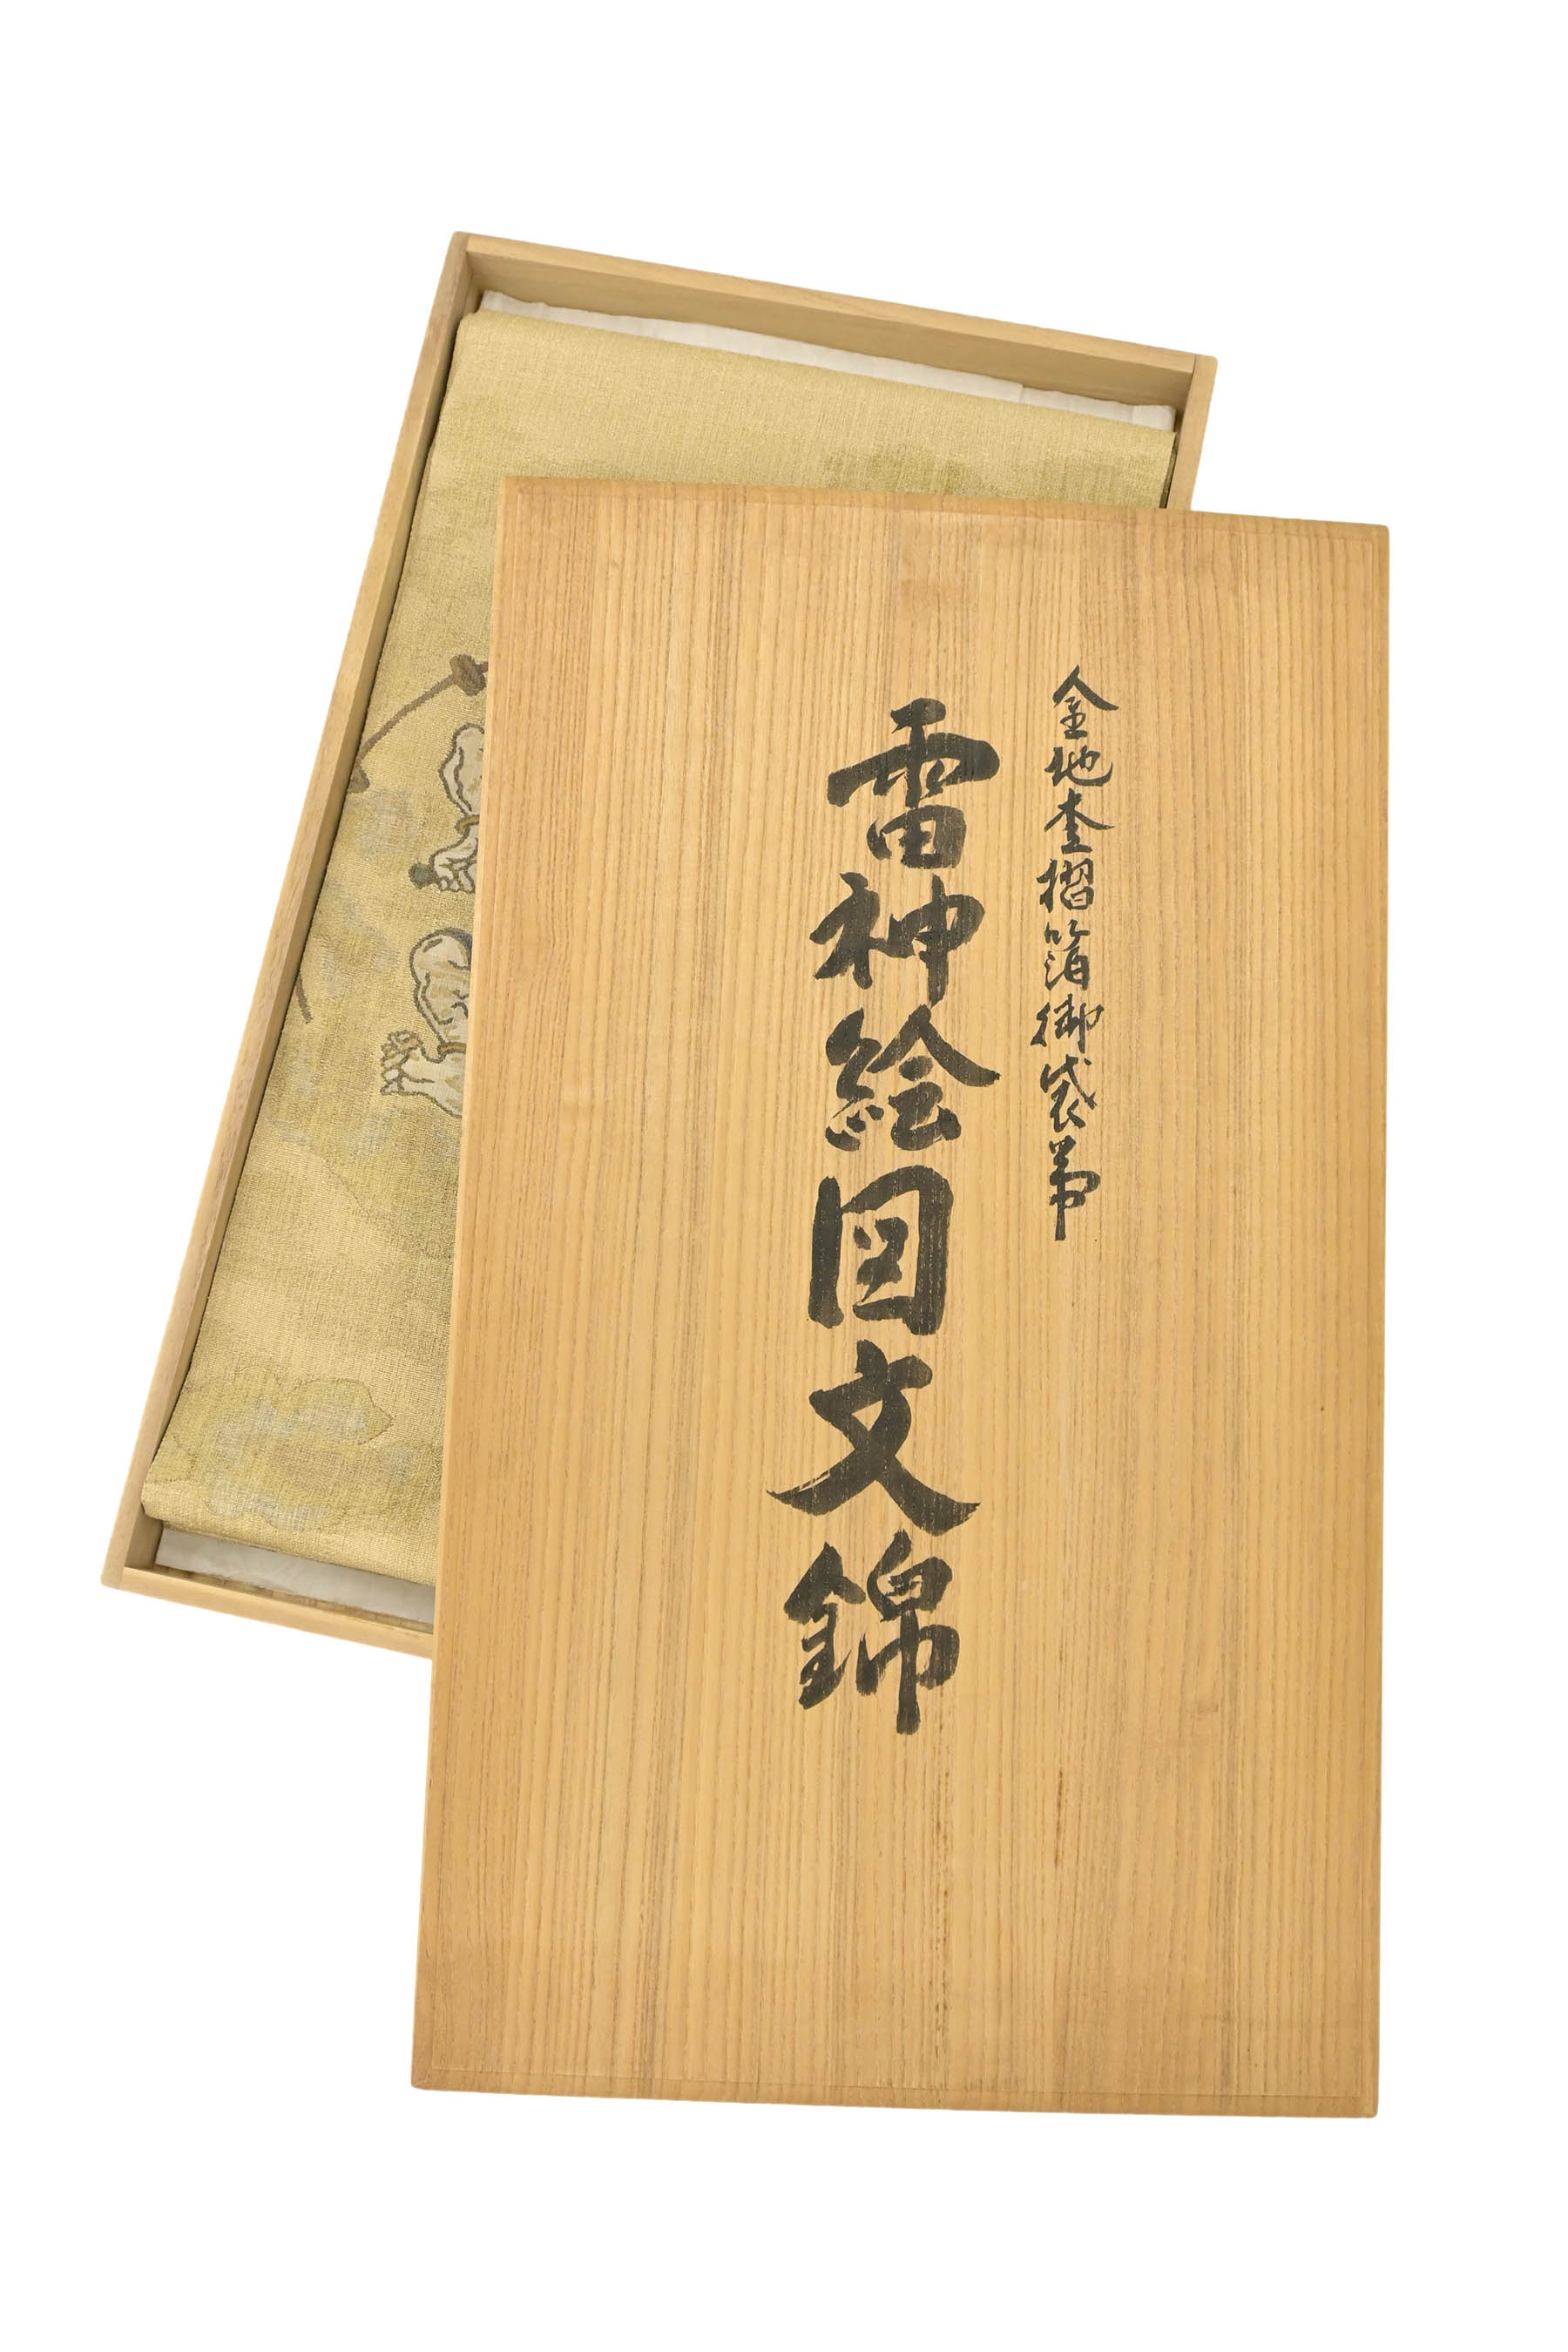 金地杢摺箔御袋帯
雷神絵図文錦